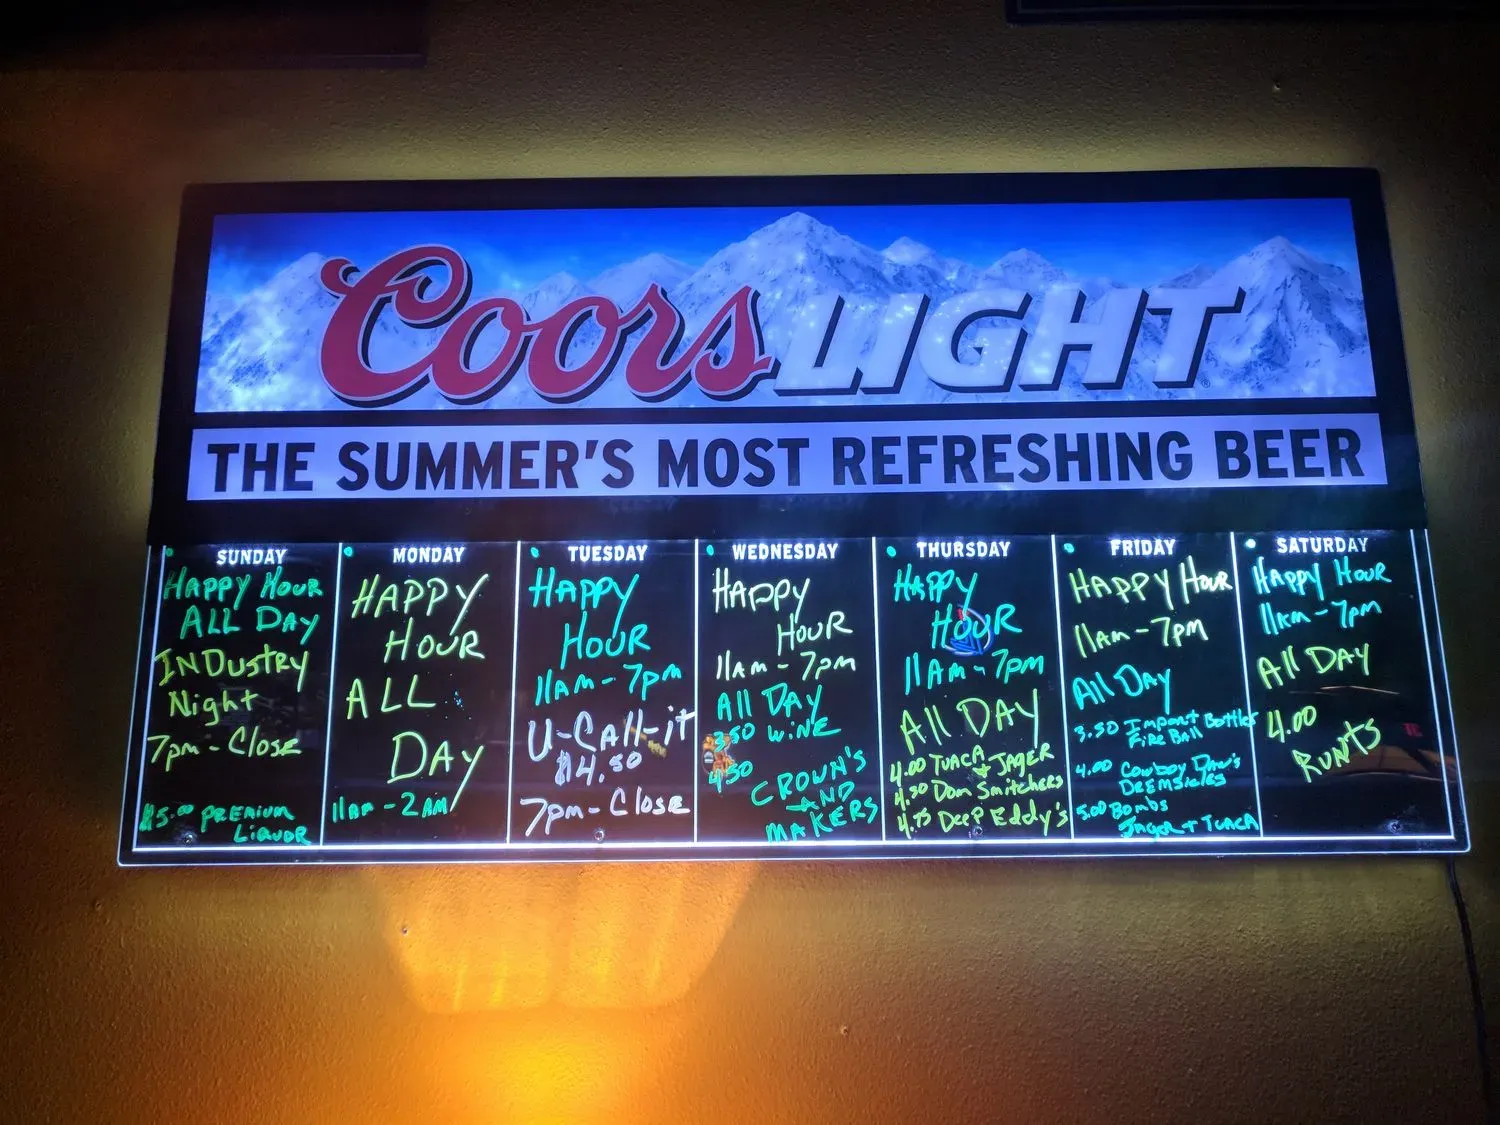 Coors LIGHT
THE SUMMER'S MOST REFRESHING BEER
SUNDAY
HAPPY HOUR
ALL DAY
INDustry
Night
7pm - Close
$5.00 PREMIUM
LIQUOR
MONDAY
HAPPY
HOUR
ALL
DAY
11AM - 2AM
TUESDAY
HAPPY
HOUR
11AM - 7pm
U-CAll-it
$4.50
7pm - Close
WEDNESDAY
HAPPY
HOUR
11AM - 7pm
All DAY
3.50 WINE
4.50
CROWN'S
AND
MAKERS
THURSDAY
HAPPY
HOUR
11AM - 7pm
All DAY
4.00 TUACA
+ JAGER
4.50 Dom Smitchers
4.75 Deep Eddy's
FRIDAY
HAPPY HOUR
11AM - 7pm
All DAY
3.50 Import Bottles
Fire Ball
4.00 Cowboy Daw's
DREMSicles
5.00 Bombs
JAGER + TUACA
SATURDAY
HAPPY HOUR
11AM - 7pm
All DAY
4.00
RUNTS